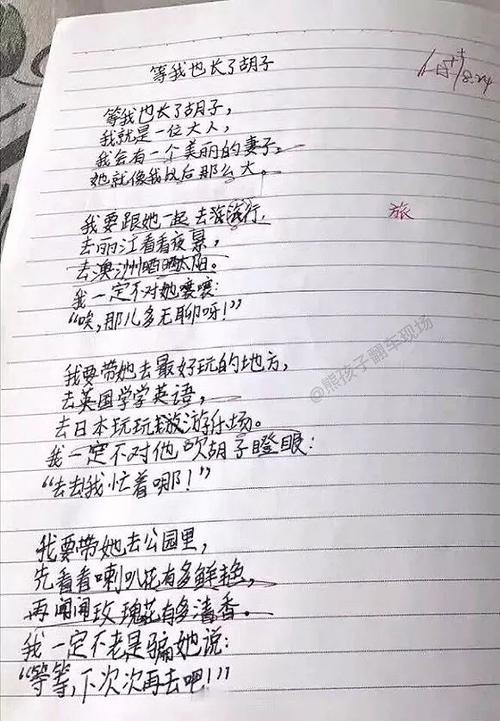 等我也长了胡子
等我也长了胡子，
我就是一位大人，
我会有一个美丽的妻子，
她就像我以后那么大。
我要跟她一起去旅旅行，
旅
去丽江看看夜景，
去澳洲晒晒太阳。
我一定不对她嚷嚷：
“唉，那儿多无聊呀！”
我要带她去最好玩的地方，
去英国学学英语，
去日本玩玩游乐场。
我一定不对他吹胡子瞪眼：
“去去我忙着哪！”
我要带她去公园里，
先看看喇叭花有多鲜艳，
再闻闻玫瑰花有多清香。
我一定不老是骗她说：
“等等，下次次再去吧！”
@熊孩子翻车现场